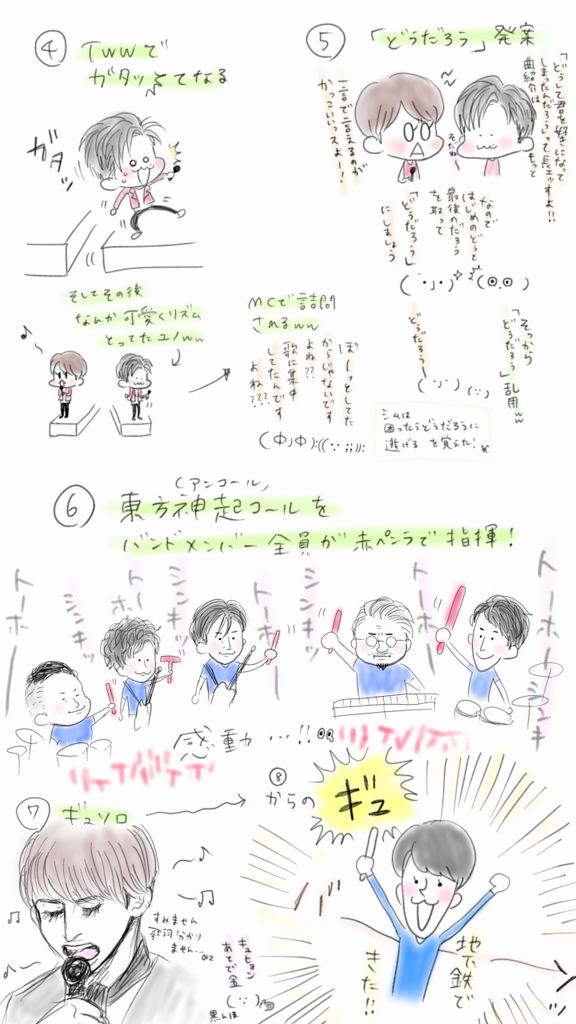 ④ TWWで
ガタッってなる
ガタッ
そしてその後
なんか可愛くリズム
とってたユノww
MCで詰問
されるww
ぼーっとしてた
からじゃないです
よね??
歌に集中
してたんです
よね???
⑤ 「どうだろう」発案
「どうして君を好きになって
しまったんだろう」って長ェッすよ!!
曲紹介はもっと
一言で言えるのが
かっこいいっスよー!!
そだね
なので
はじめのどうと
最後のだろう
を取って
「どうだろう」
にしましょう
どうだろう
「そっから
どうだろう」乱用ww
シムは
困ったらどうだろうに
逃げる を覚えた!
⑥ 東方神起コールを
(アンコール)
バンドメンバー全員が赤ペンラで指揮!
トーホー
シンキッ
トーホー
シンキッ
トーホー
シンキッ
トーホー
トーホー
シンキ
感動…!!
⑦ ギュソロ
すみません
歌詞分かり
ません…
キュヒョン
あとで金
黒んぼ
⑧
からの
ギュ
地下鉄で
きた!!